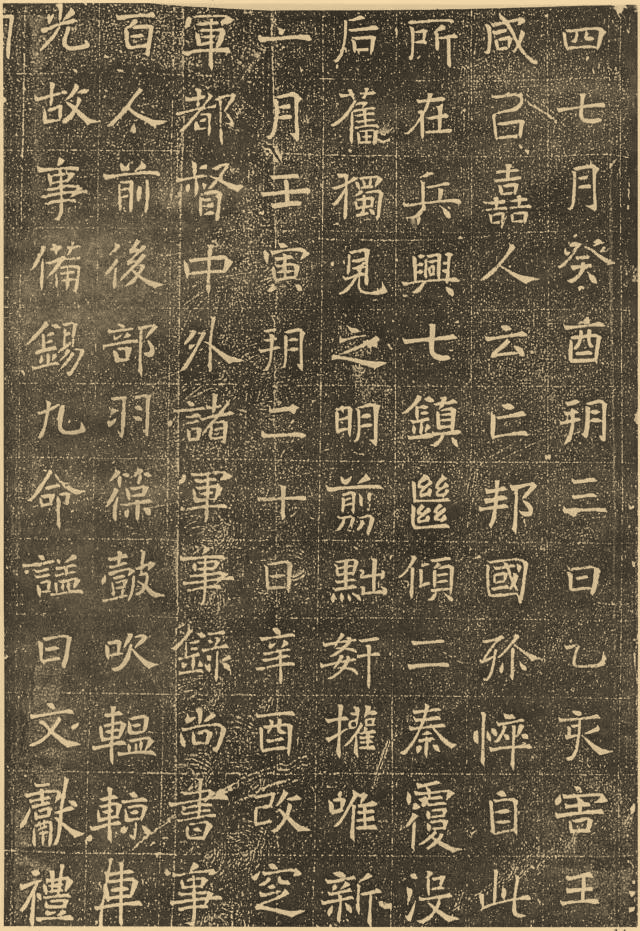 四七月癸酉朔三日乙亥害王
咸召嚞人云亡邦國殄悴自此
所在兵興七鎮㡭傾二秦覆沒
后舊獨見之明剪黜姧擢唯新
一月壬寅朔二十日辛酉改窆
軍都督中外諸軍事錄尚書事
百人前後部羽葆鼓吹轀輬車
光故事備錫九命諡曰文獻禮